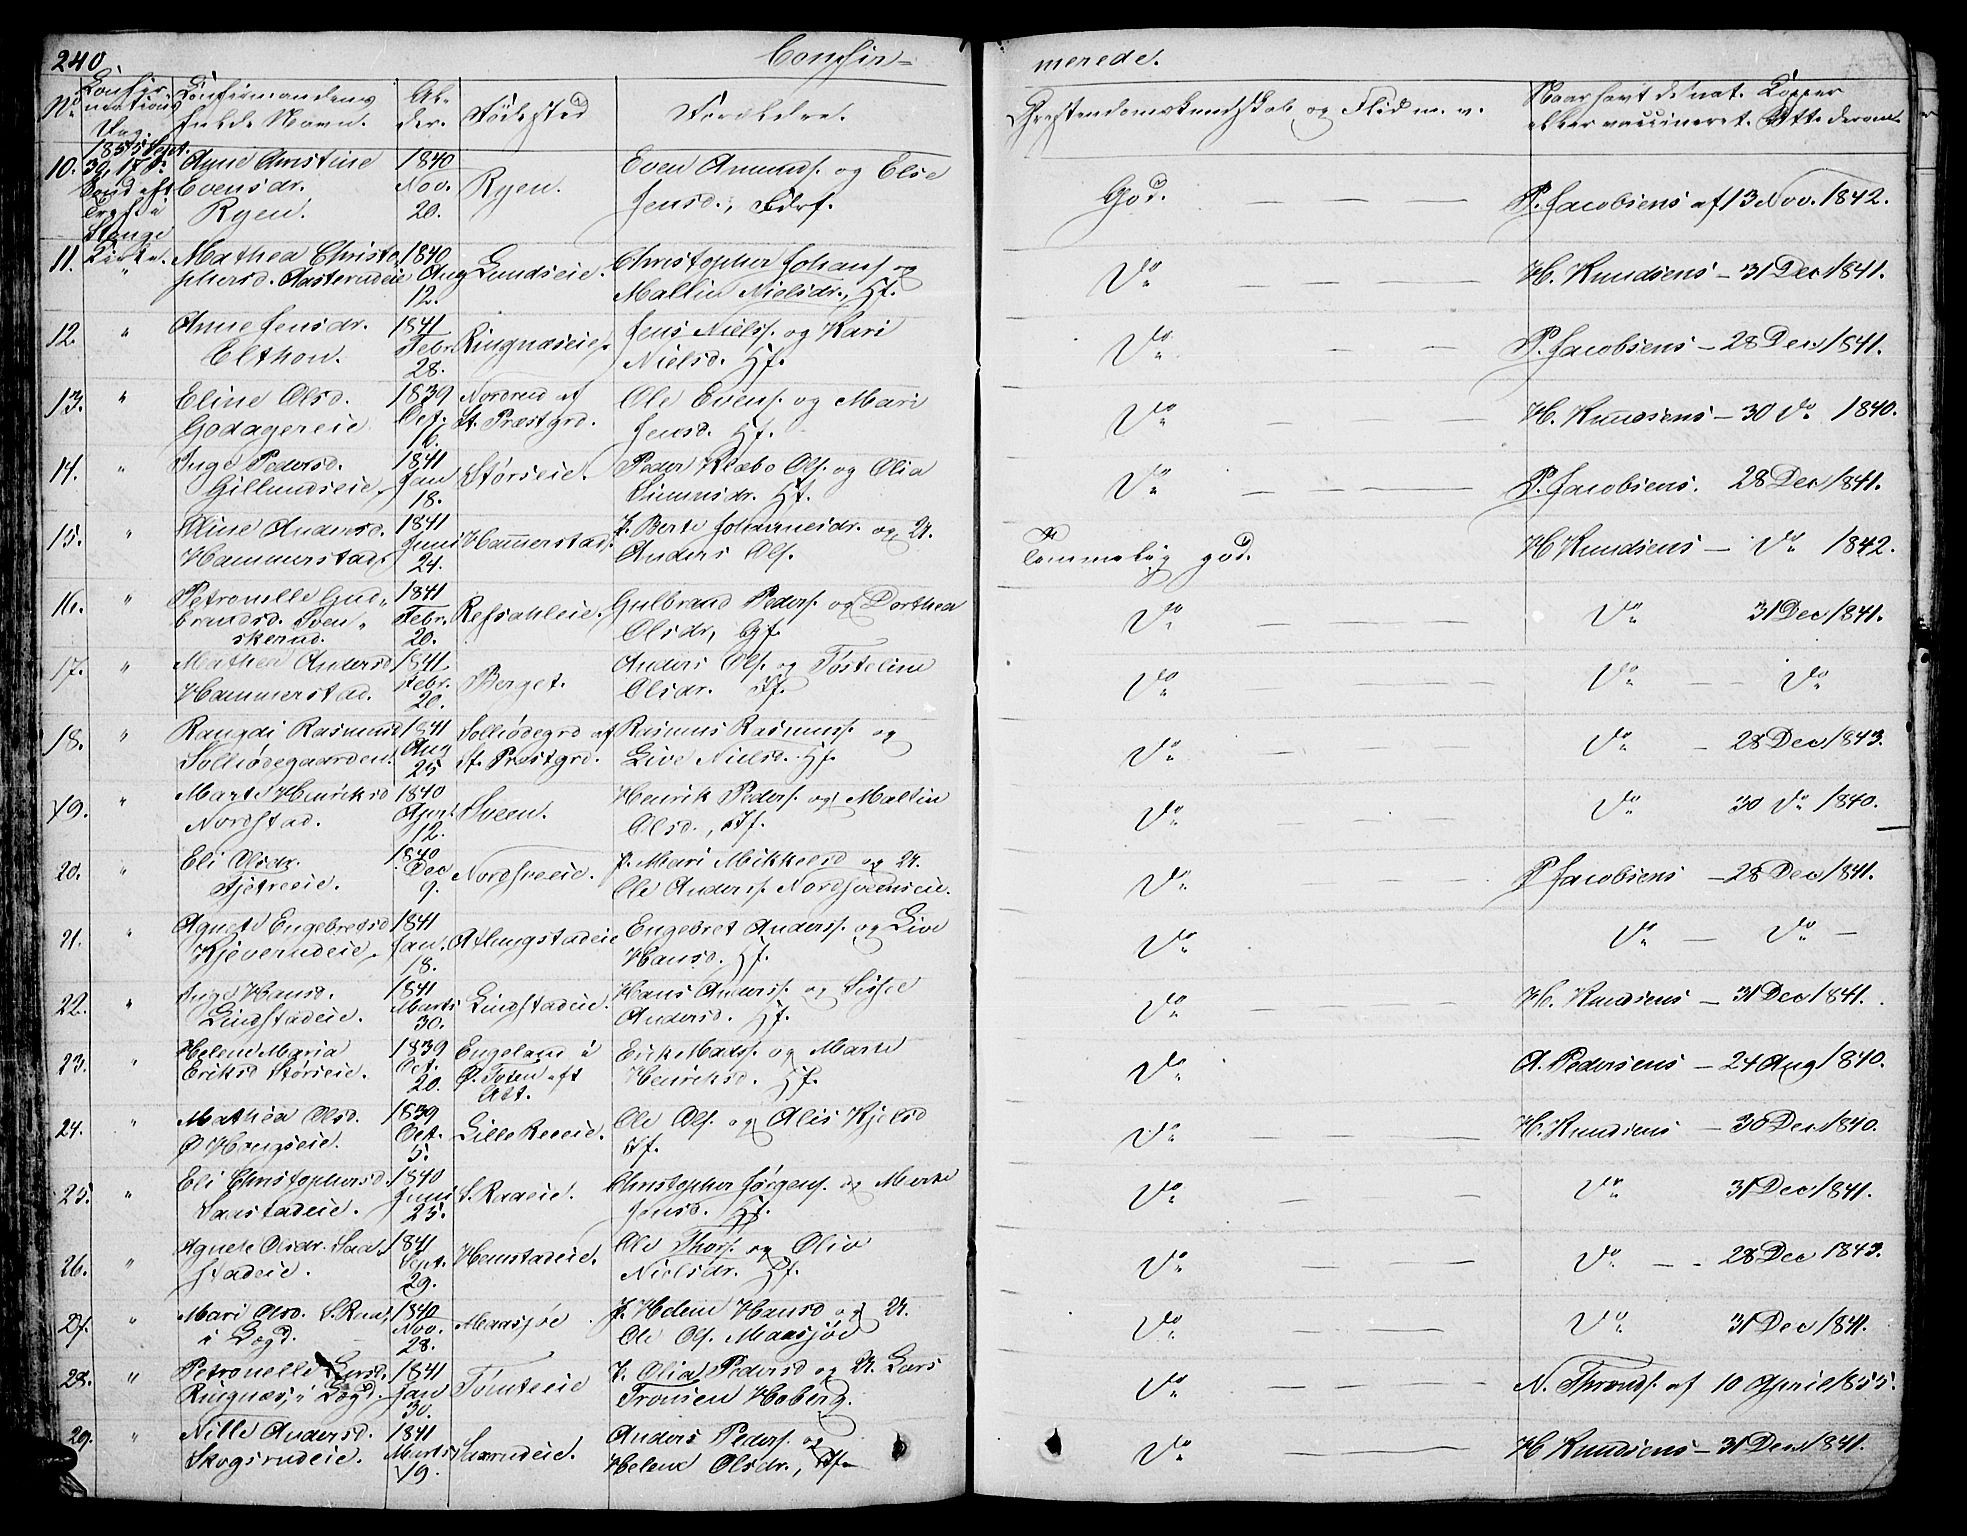 240
Confir-
merede.
No. Confirmations Dag. Confirmandens fulde Navn. Alder. Födested Forældre. Christendomskundskab og Flid m. v. Naar havt de nat. Kopper eller vaccineret. Att. derom.
1855 Sept. 30, 17 S. i Stange Kirke.
10. Anne Christine Evensdr. Ryen. 1840 Nov. 20. Ryen. Even Amunds. og Else Jensd., God. P. Jacobsens af 13 Nov. 1842.
11. " Mathea Christophersd. 1840 Aug 12. Lundseie. Christopher Johans. og Maltin Nielsdr., Hf. Do — — — H. Knudsens — 31 Dec 1841.
12. " Anne Jensdr. Elthon. 1841 Febr. 28. Ringnæseie. Jens Niels. og Kari Nielsd. Hf. Do — — P. Jacobsens — 28 Dec 1841.
13. " Eline Olsd. Godagereie 1839 Oct. 16. Nordrud af St. Præstgrd. Ole Evens. og Mari Jensd. Hf. Do — — — H. Knudsens — 30 Do 1840.
14. " Inge Pedersd. Gillundseie, 1841 Jan 18. Störseie. Peder Klæbo Ols. og Olia Simensdr. Hf. Do — — — P. Jacobsens. 28 Dec 1841.
15. " Andersd. Hammerstad. 1841 Juni 24. Hammerstad. P. Berte Johannesdr. og U. Anders Ols. Temmelig god. H Knudsens — Do 1842.
16. " Petronelle Gudbrandsd. Svenskerud. 1841 Febr. 20. Refsahleie. Gulbrand Peders. og Dorthea Olsdr., Do — — — Do 31 Dec 1841.
17. " Mathea Andersd Hammerstad. 1841. Febr. 20. Berget. Anders Ols. og Tosteline Olsdr. Hf. Do — — — Do — — Do
18. " Rangdi Rasmusd Solliödegaarden. 1841 Aug 25 Solliödegrd af St. Præstgrd. Rasmus Rasmuss. og Live Nielsd. Hf. Do — — — Do — 28 Dec 1843.
19. " Marte Henriksd Nordstad. 1840 April 12. Sveen. Henrik Peders. og Maltin Olsd., Hf. Do — — — Do 30 Do 1840.
20. " Eli Olsdr. Fjetreeie. 1840 Dec 9. Nordsveeie. P. Mari Mikkelsd og U. Ole Anders. Nordsveenseie. Do — — — P Jacobsens — 28 Dec 1841.
21. " Agnete Engebretsd Kjeverudeie, 1841 Jan. 18. Engebret Anders. og Live Hansd. Hf. Do — — — Do — Do —
22. " Inge Hansd. Lindstadeie. 1841 Marts 30. Lindstadeie. Hans Anders. og Sidsee Andersd. Hf. Do — — — H. Knudsens — 31 Dec 1841.
23. " Helene Maria Eriksd Störseie. 1839 Oct. 20. Engeland i Ö. Toten eft Att. Erik Mads. og Marte Henriksd. Hf. Do — — — A. Pedersens — 24 Aug 1840.
24. " Mathea Olsd. Ö Hougseie. 1839 Oct. 5. Lille Reeeie. Ole Ols. og Alis Kjelsd Hf. Do — — — H. Knudsens — 30 Dec 1840.
25. " Eli Christophersd. Saastadeie. 1840 Juni 25. S. Raaeie. Christopher Jörgens. og Marte Jensd. Hf. Do — — — Do 31 Dec 1841.
26. " Agnete Olsdr. Saastadeie. 1841 Sept. 29. Hemstadeie. Ole Thors. og Olia Nielsdr. Hf. Do — — — Do — - 28 Dec 1843.
27. " Mari Olsd. S. Raa, i Lægd. 1840 Nov. 28. Maasjöe. P. Helene Hansd og U. Ole Ols. Maasjöe Do — — — Do 31 Dec 1841.
28. " Petronelle Larsd. Ringnæs, i Lægd. 1841 Jan 30. Tömteeie P. Olia Pedersd og U. Lars Tronsen Hoberg. Do — — — N. Thronds. af 10 April 1855.
29. " Nille Andersd. Skogsrudeie. 1841 Marts 19. Saxrudeie. Anders Peders. og Helene Olsdr., Hf. Do — — — H Knudsens — 31 Dec 1841.